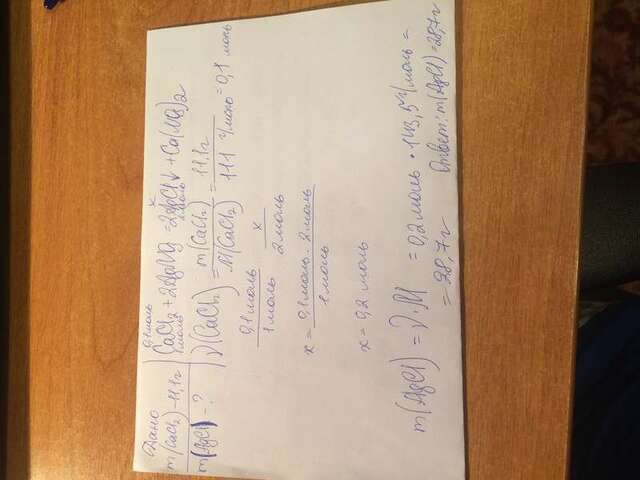 Дано
m(CaCl₂) - 11,1г
m(AgCl) - ?
0,1моль x
CaCl₂ + 2AgNO₃ = 2AgCl↓ + Ca(NO₃)₂
1моль 2моль
ν(CaCl₂) = m(CaCl₂) / M(CaCl₂) = 11,1г / 111 г/моль = 0,1 моль
0,1моль / 1моль x / 2моль
x = 0,1моль · 2моль / 1моль
x = 0,2 моль
m(AgCl) = ν·M = 0,2моль · 143,5г/моль =
= 28,7г
Ответ: m(AgCl) = 28,7г